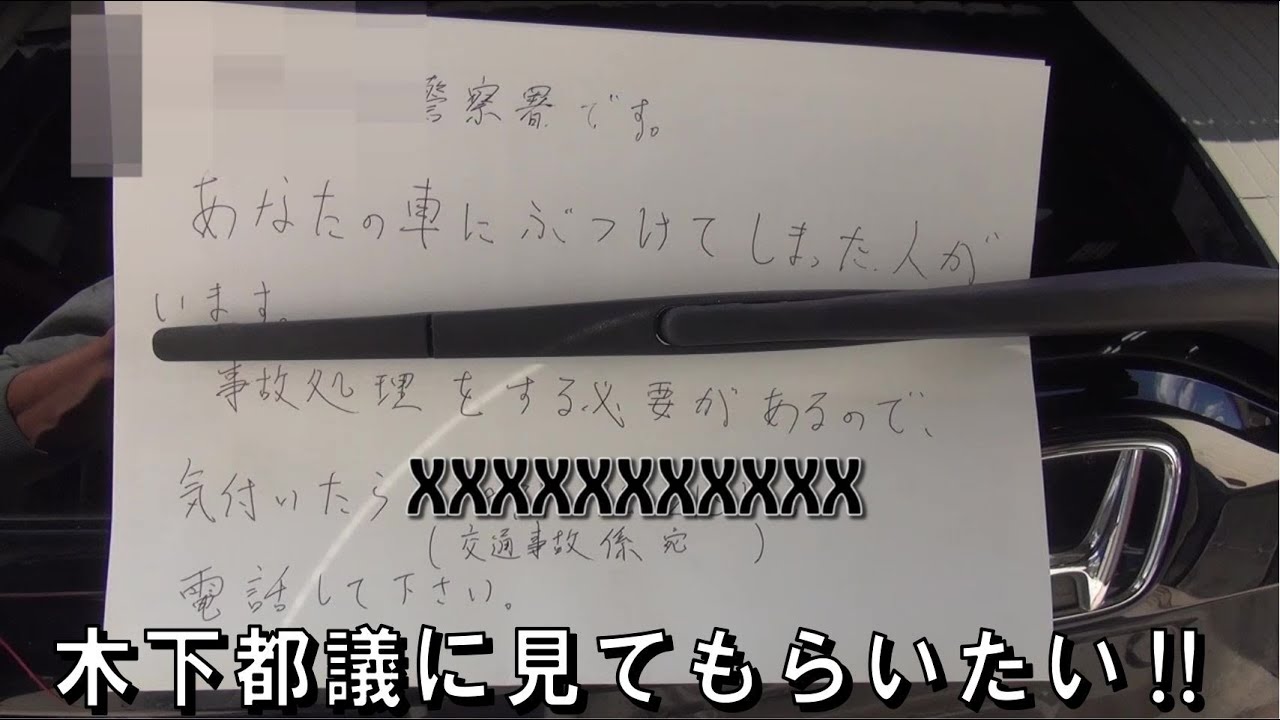 警察署です。
あなたの車にぶつけてしまった人が
います。
事故処理をする必要があるので、
気付いたら XXXXXXXXXXX
(交通事故係宛 )
電話して下さい。
木下都議に見てもらいたい!!